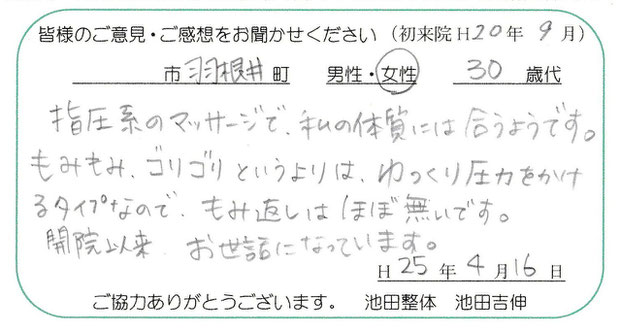 皆様のご意見・ご感想をお聞かせください（初来院H20年9月）
市羽根井町 男性・女性 30歳代
指圧系のマッサージで、私の体質には合うようです。
もみもみ、ゴリゴリというよりは、ゆっくり圧力をかけ
るタイプなので、もみ返しはほぼ無いです。
開院以来 お世話になっています。
H25年4月16日
ご協力ありがとうございます。 池田整体 池田吉伸